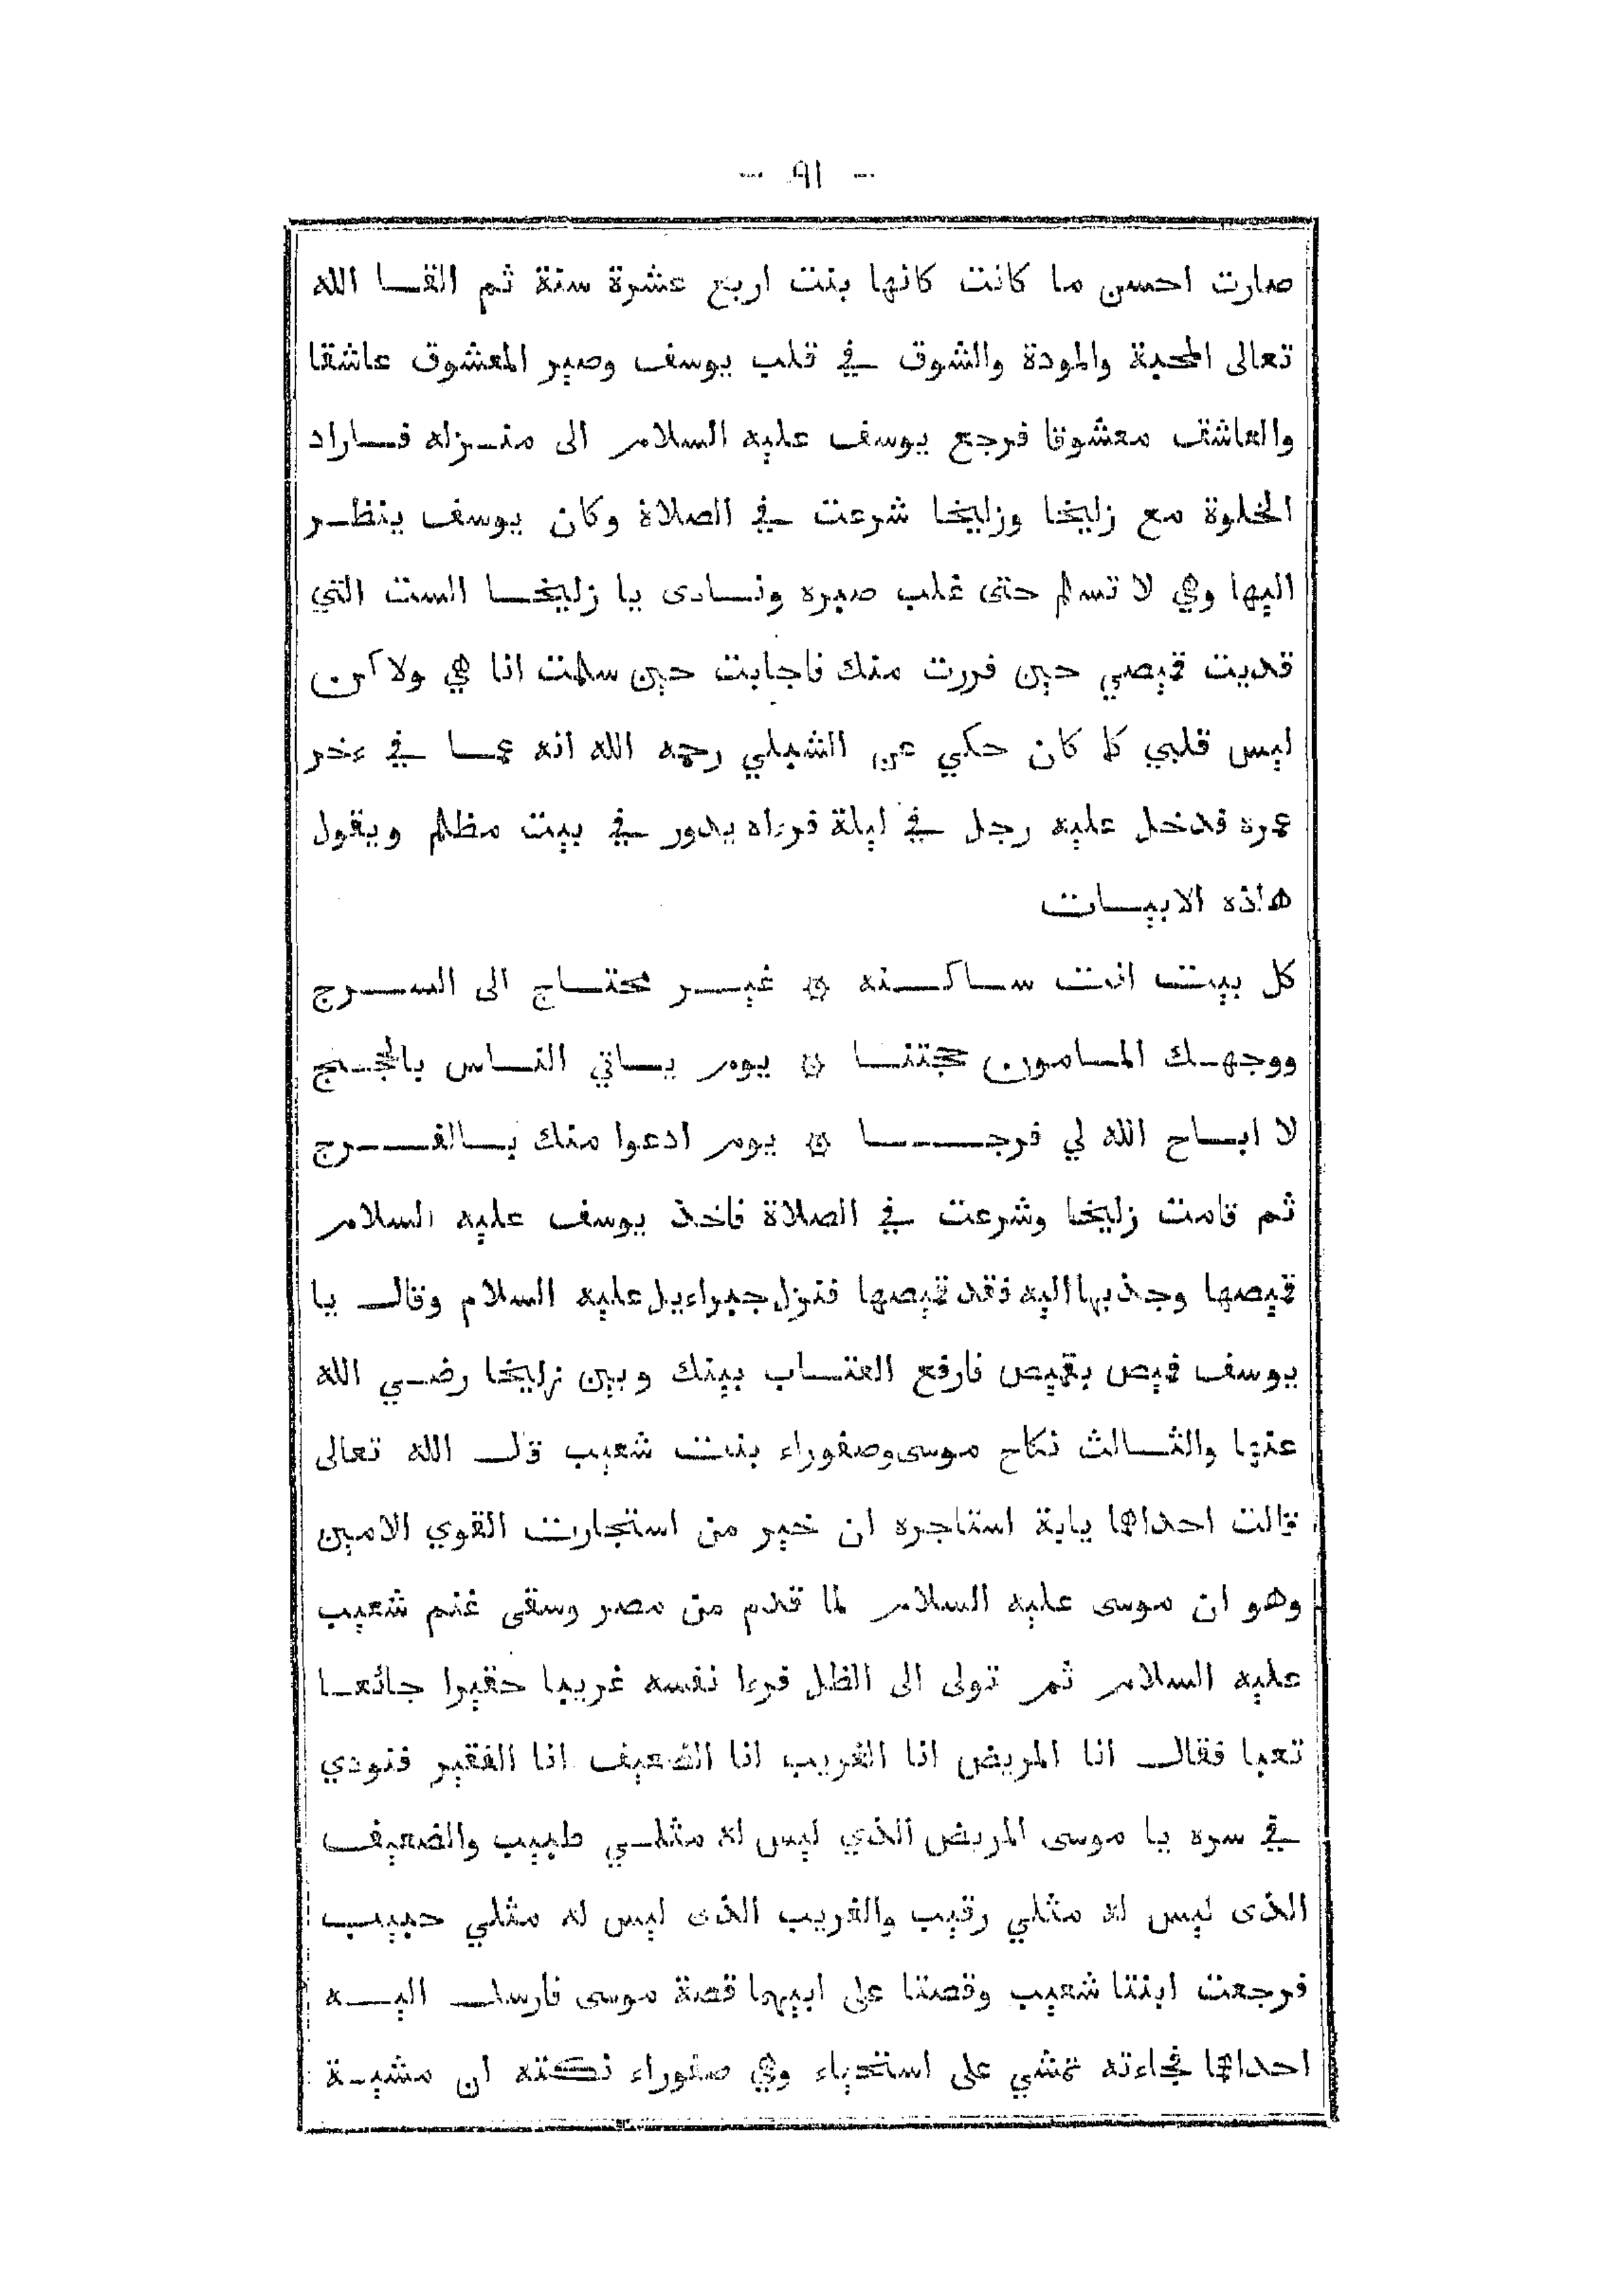 - ٩١ -
صارت احسن ما كانت كانها بنت اربع عشرة سنة ثم القا الله
تعالى المحبة والمودة والشوق في قلب يوسف وصير المعشوق عاشقا
والعاشق معشوقا فرجع يوسف عليه السلام الى منزله فاراد
الخلوة مع زليخا وزليخا شرعت في الصلاة وكان يوسف ينظر
اليها وهي لا تسلم حتى غلب صبره ونادى يا زليخا الست التي
قديت قميصي حين فررت منك فاجابت حين سلمت انا هي ولاكن
ليس قلبي كما كان حكي عن الشبلي رحمه الله انه عما في ءخر
عمره فدخل عليه رجل في ليلة فرءاه يدور في بيت مظلم ويقول
هاذه الابيات
كل بيت انت ساكنه ۞ غير محتاج الى السرج
ووجهك المامون حجتنا ۞ يوم ياتي الناس بالحجج
لا اباح الله لي فرجا ۞ يوم ادعوا منك بالفرج
ثم قامت زليخا وشرعت في الصلاة فاخذ يوسف عليه السلام
قميصها وجذبها اليه فقد قميصها فنزل جبراءيل عليه السلام وقال يا
يوسف قميص بقميص فارفع العتاب بينك وبين زليخا رضي الله
عنها والثالث نكاح موسى وصفوراء بنت شعيب قال الله تعالى
قالت احداهما يابة استاجره ان خير من استجارت القوي الامين
وهو ان موسى عليه السلام لما قدم من مصر وسقى غنم شعيب
عليه السلام ثم تولى الى الظل فرءا نفسه غريبا حقيرا جائعا
تعبا فقال انا المريض انا الغريب انا الضعيف انا الفقير فنودي
في سره يا موسى المريض الذي ليس له مثلي طبيب والضعيف
الذى ليس له مثلي رقيب والغريب الذى ليس له مثلي حبيب
فرجعت ابنتا شعيب وقصتا على ابيهما قصة موسى فارسل اليه
احداهما فجاءته تمشي على استحياء وهي صفوراء نكته ان مشية